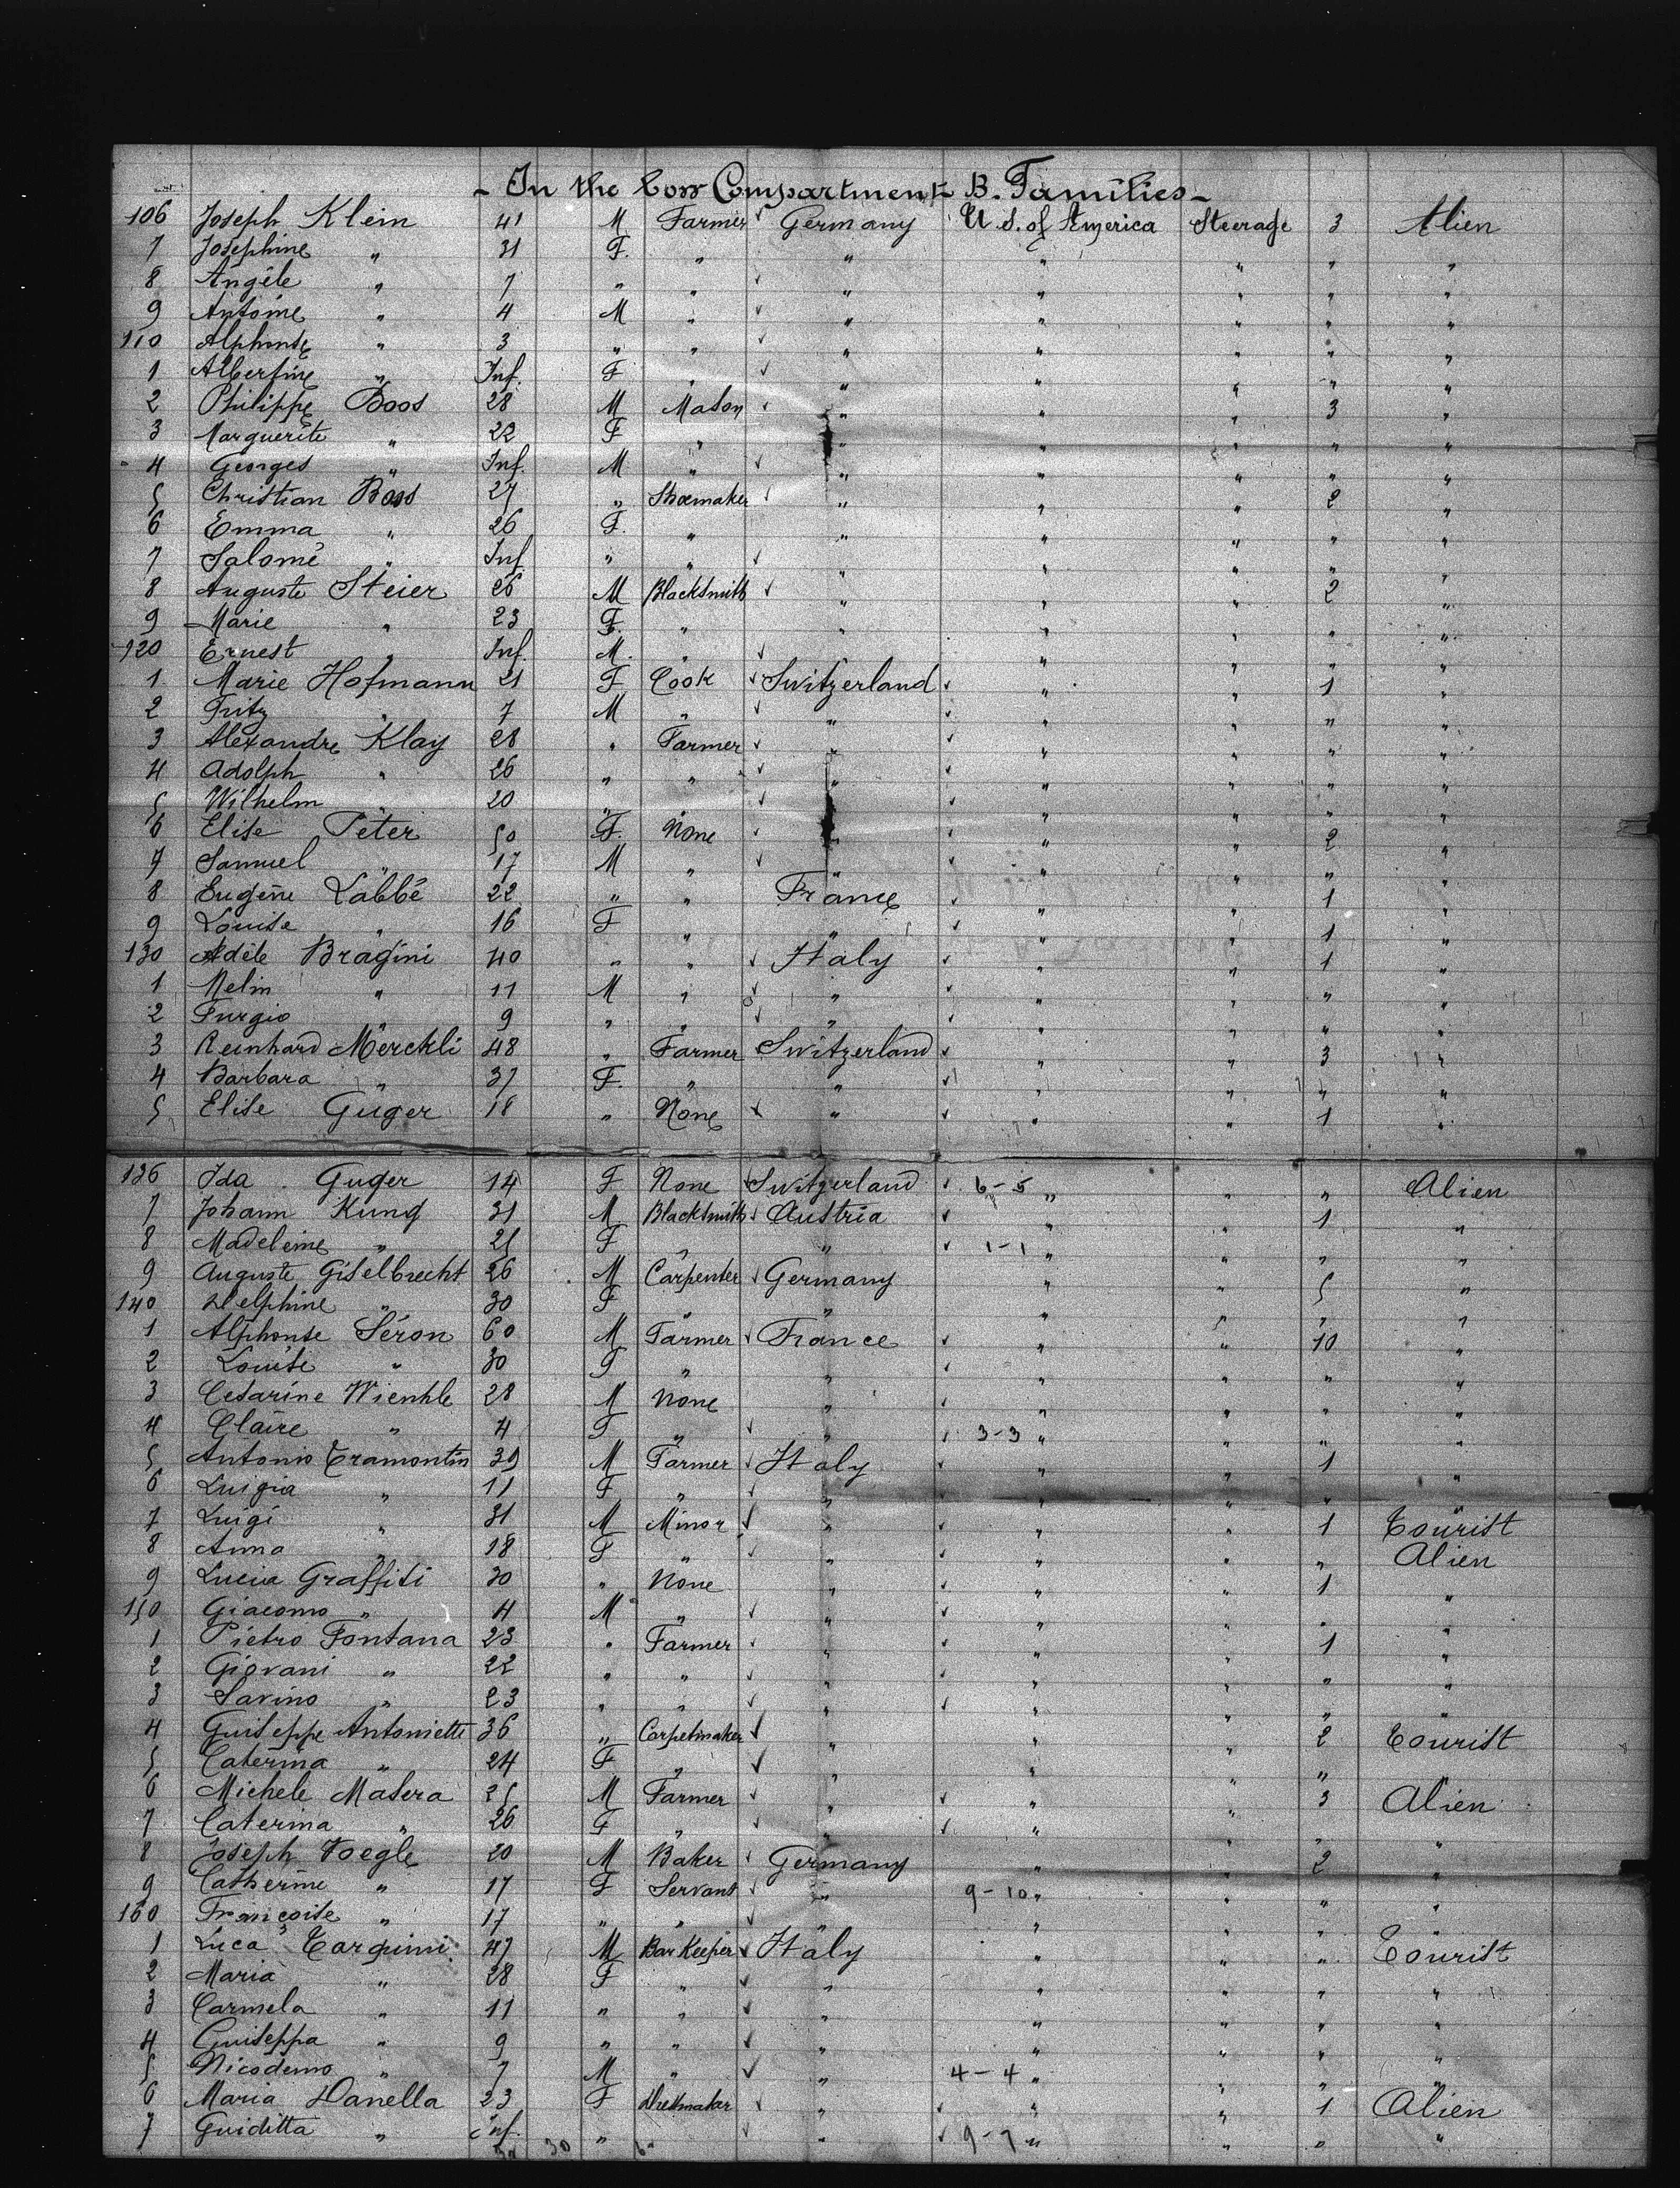 - In the bow Compartment B. Families -
106 Joseph Klein 41 M Farmer Germany U S. of America Steerage 3 Alien
7 Josephine " 31 F. " " " " " "
8 Angèle " 7 " " " " " " "
9 Antoine " 4 M " " " " " "
110 Alphonse " 3 " " " " " " "
1 Albertine " Inf. F " " " " " "
2 Philippe Boos 28 M Mason " " " 3 "
3 Marguerite " 22 F " " " " " "
4 Georges " Inf. M " " " " " "
5 Christian Boos 27 " Shoemaker " " " 2 "
6 Emma " 26 F. " " " " " "
7 Salomé " Inf " " " " " " "
8 Auguste Steier 26 M Blacksmith " " " 2 "
9 Marie " 23 F. " " " " " "
120 Ernest " Inf. M. " " " " " "
1 Marie Hofmann 21 F Cook Switzerland " " 1 "
2 Fritz " 7 M " " " " " "
3 Alexandre Klay 28 " Farmer " " " " "
4 Adolph " 26 " " " " " " "
5 Wilhelm " 20 " " " " " " "
6 Elise Peter 50 F. None " " " 2 "
7 Samuel " 17 M " " " " " "
8 Eugène Labbé 22 " " France " " 1 "
9 Louise " 16 F " " " " 1 "
130 Adèle Bragini 40 " " Italy " " 1 "
1 Melin " 11 M " " " " " "
2 Furgio " 9 " " " " " " "
3 Reinhard Merckli 48 " Farmer Switzerland " " 3 "
4 Barbara " 37 F. " " " " " "
5 Elise Guger 18 " None " " " 1 "
136 Ida Guger 14 F None Switzerland 6-5 " " " Alien
7 Johann Kung 31 M Blacksmith Austria " " 1 "
8 Madeleine " 25 F " " 1-1 " " " "
9 Auguste Giselbrecht 26 M Carpenter Germany " " 5 "
140 Delphine " 30 F " " " " " "
1 Alphonse Séron 60 M Farmer France " " 10 "
2 Louise " 30 F " " " " " "
3 Cesarine Wienhle 28 M None " " " " "
4 Claire " 4 F " " 3-3 " " " "
5 Antonio Tramontin 39 M Farmer Italy " " 1 "
6 Luigia " 11 F " " " " " "
7 Luigi " 31 M Minor " " " 1 Tourist
8 Anna " 18 F " " " " " Alien
9 Lucia Graffiti 30 " None " " " 1 "
150 Giacomo " 4 M " " " " " "
1 Pietro Fontana 23 " Farmer " " " 1 "
2 Giovani " 22 " " " " " " "
3 Savino " 23 " " " " " " "
4 Guiseppe Antoniette 36 " Carpetmaker " " " 2 Tourist
5 Caterina " 24 F " " " " "
6 Michele Masera 35 M Farmer " " " 3 Alien
7 Caterina " 26 F " " " " " "
8 Joseph Voegle 20 M Baker Germany " " 2 "
9 Catherine " 17 F Servant " 9-10 " " " "
160 Françoise " 17 " " " " " " "
1 Luca Tarquini 47 M Bar Keeper Italy " " " Tourist
2 Maria " 28 F " " " " " "
3 Carmela " 11 " " " " " " "
4 Guiseppa " 9 " " " " " " "
5 Nicodemo " 7 M " " 4-4 " " " "
6 Maria Danella 23 F Dressmaker " " " 1 Alien
7 Guiditta " inf. " " 9-7 " " " "